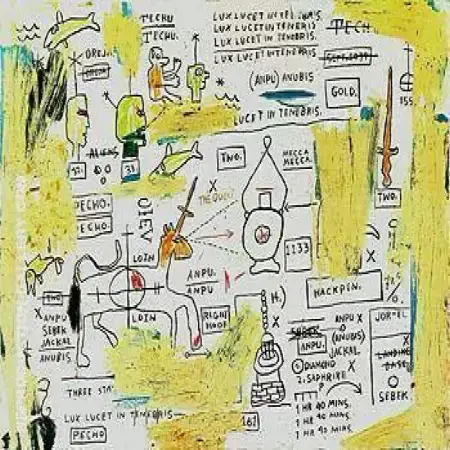 TECHU
TECHU.
LUX LUCET IN TENEBRIS.
LUX LUCET IN TENEBRIS
LUX LUCET IN TENEBRIS.
LUX LUCET IN TENEBRIS.
TECH
OREJ.
(ANPU) ANUBIS
GOLD.
155
LUCET IN TENEBRIS.
ALIENS
33
TWO.
MECCA
MECCA.
TWO.
PECHO.
ECHO.
THE QUEEN
LOIN
1133
ANPU.
ANPU
HACKPEN.
LOIN
RIGHT
HOOF
H.)
ANPU
SEBEK
JACKAL
ANUBIS
SEBEK
ANPU X
ANPU.
(ANUBIS)
JACKAL
JOR-EL
LANDING
BASE
① DIAMOND X
2. SAPHRIRE
SEBEK
THREE STA
1 HR 40 MINS.
1 HR 40 MINS.
1 HR 40 MINS.
LUX LUCET IN TENEBRIS
PECHO